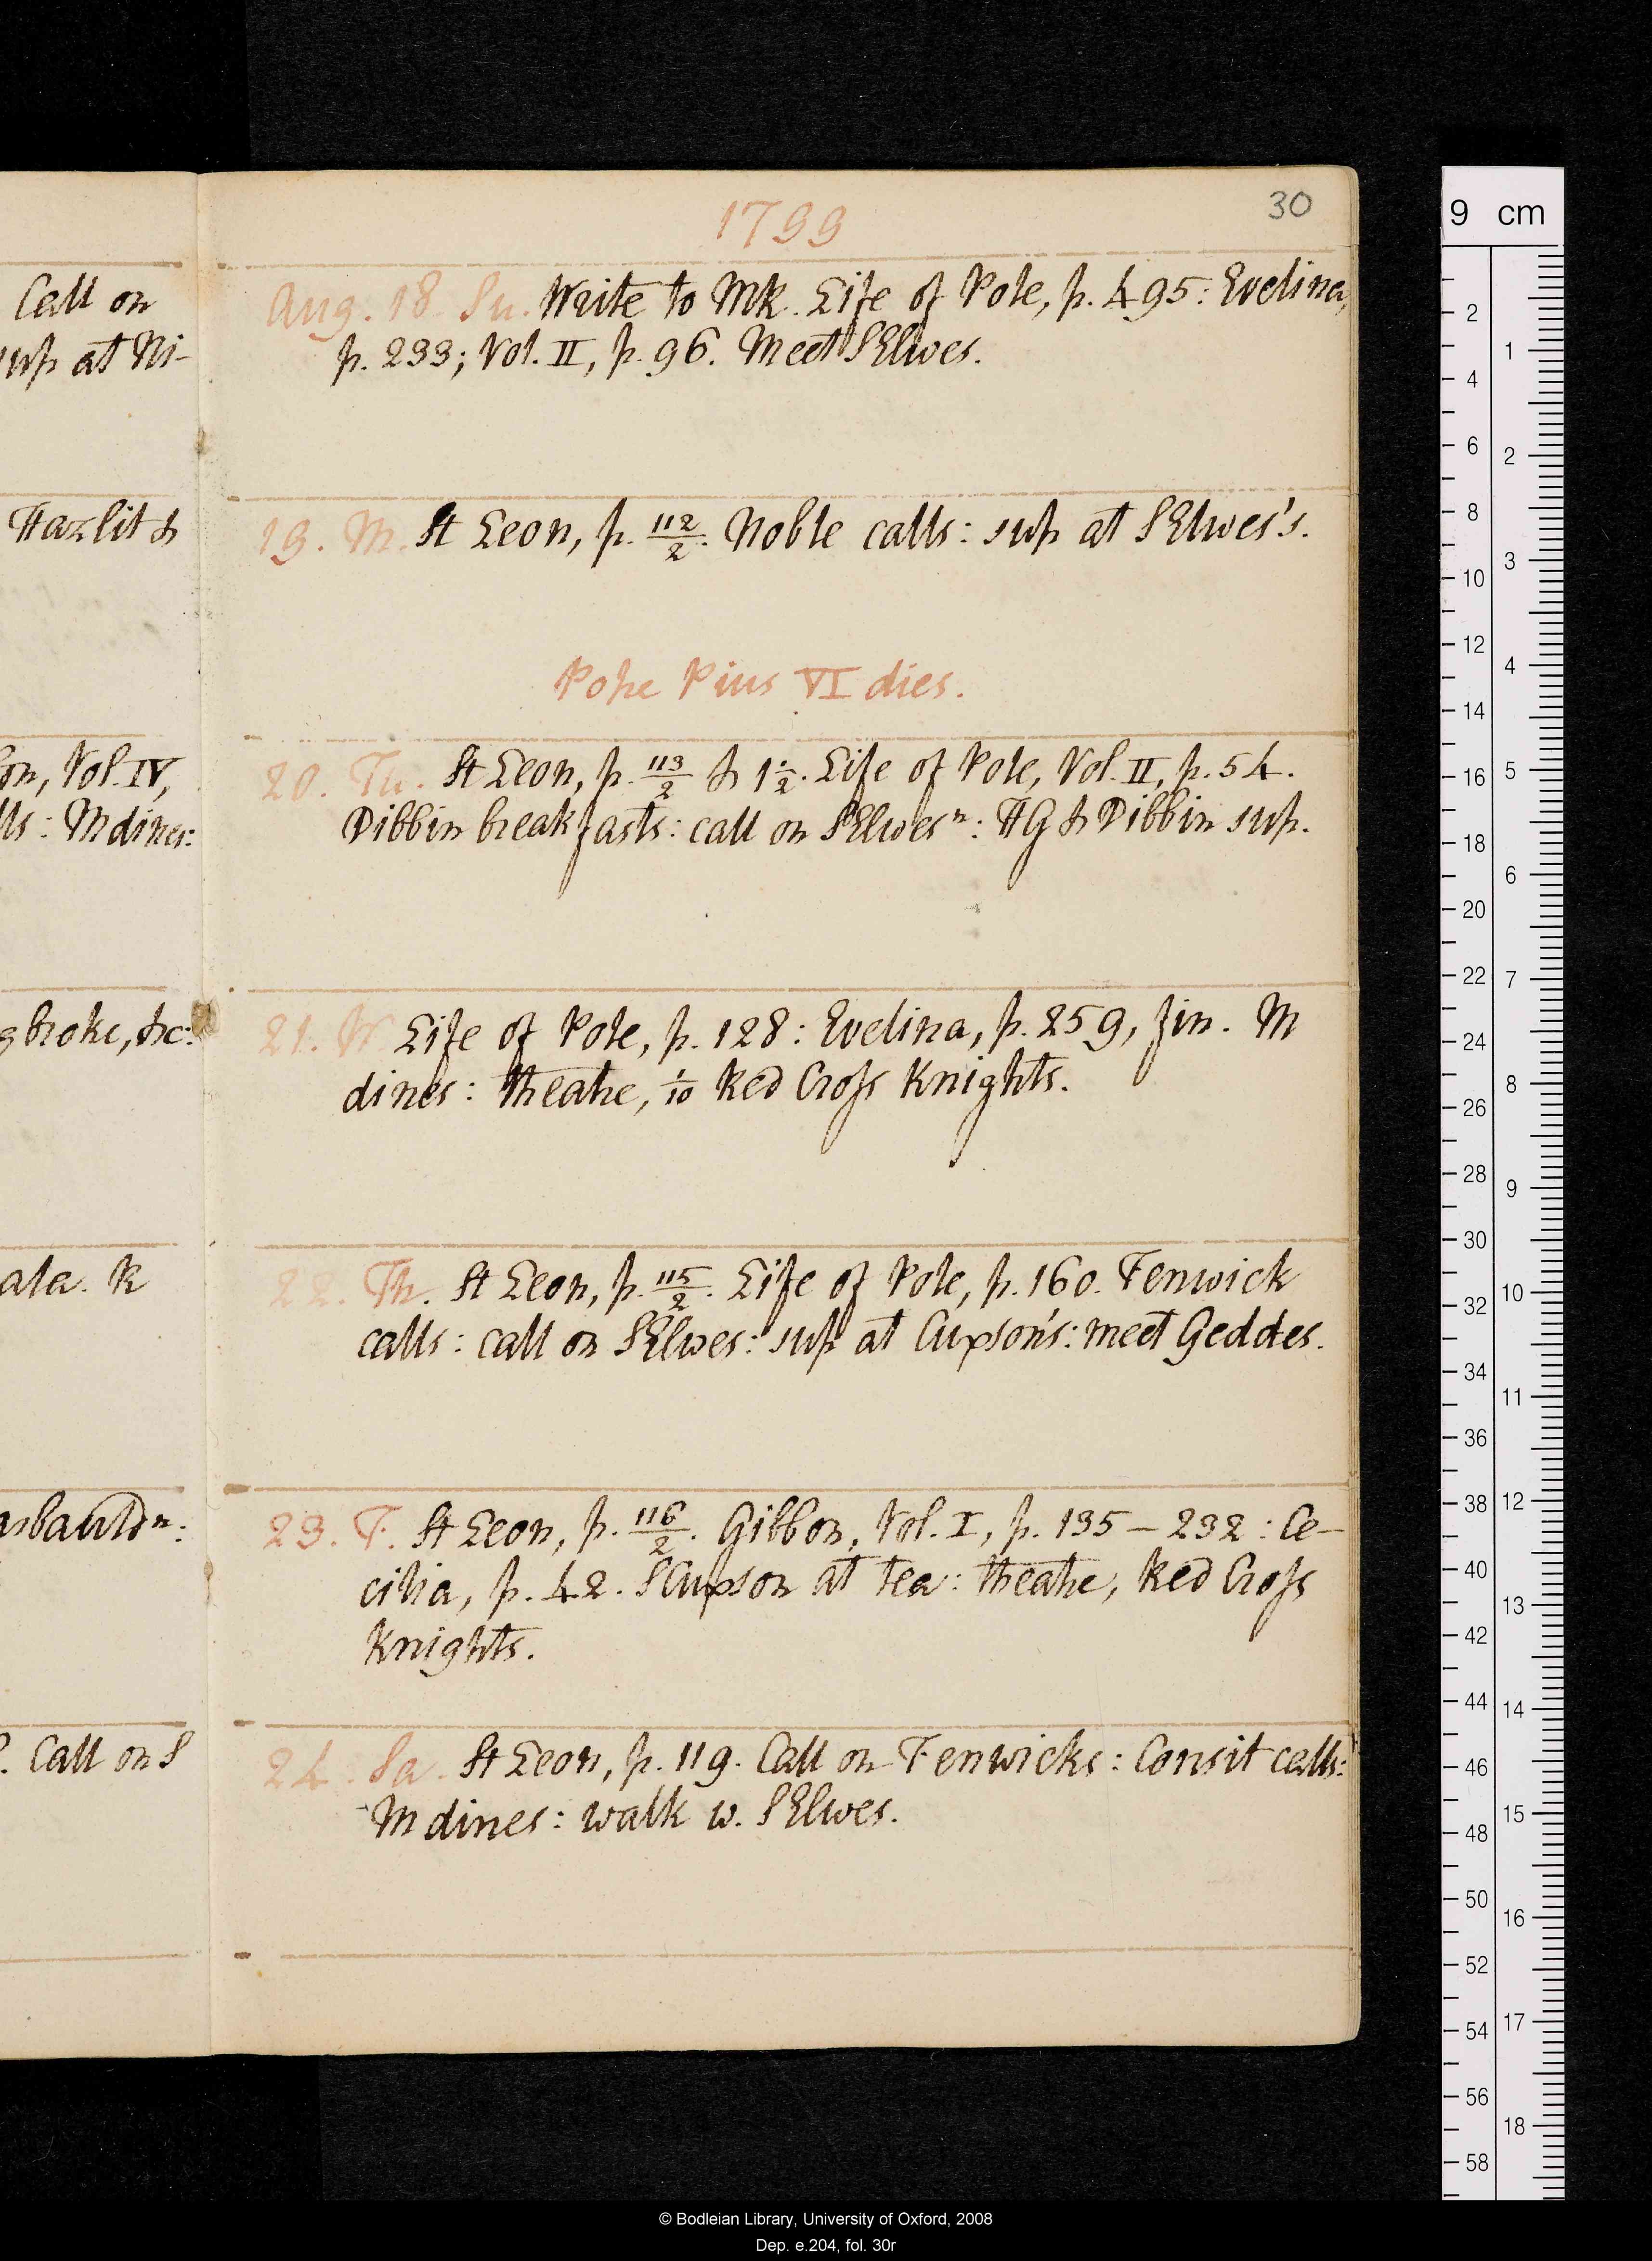 Call on
sup at Ni-
Hazlit &
Vol. IV,
lls: M dines:
broke, &c:
ala. R
Call on S
1799
30
Aug. 18. Su. Write to MR. Life of Pole, p. 495: Evelina,
p. 233; Vol. II, p. 96. Meet S Elwes.
19. M. St Leon, p. 112/2. Noble calls: sup at S Elwes's.
Pope Pius VI dies.
20. Tu. St Leon, p. 113/2 & 1 1/2. Life of Pole, Vol. II, p. 54.
Dibbin breakfasts: call on S Elwes n: HG & Dibbin sup.
21. W. Life of Pole, p. 128: Evelina, p. 259, fin. M
dines: theatre, 1/10 Red Cross Knights.
22. Th. St Leon, p. 115/2. Life of Pole, p. 160. Fenwick
calls: call on S Elwes: sup at Cupson's: meet Geddes.
23. F. St Leon, p. 116/2. Gibbon, Vol. I, p. 135–232: Ce-
cilia, p. 42. S Cupson at tea: theatre, Red Cross
Knights.
24. Sa. St Leon, p. 119. Call on Fenwicks: Consit calls:
M dines: walk w. S Elwes.
9 cm
2
4
6
8
10
12
14
16
18
20
22
24
26
28
30
32
34
36
38
40
42
44
46
48
50
52
54
56
58
1
2
3
4
5
6
7
8
9
10
11
12
13
14
15
16
17
18
© Bodleian Library, University of Oxford, 2008
Dep. e.204, fol. 30r